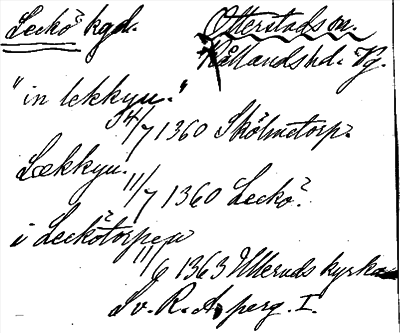 Leckö kgd. Otterstads sn.
Kållands hd. Vg.
"in lekkyu."
14/7 1360 Skölmetorp.
Lækkyu.
11/7 1360 Leckö.
i Leckötorpen
11/6 1363 Ullervds kyrka
Sv. R. A. perg. I.